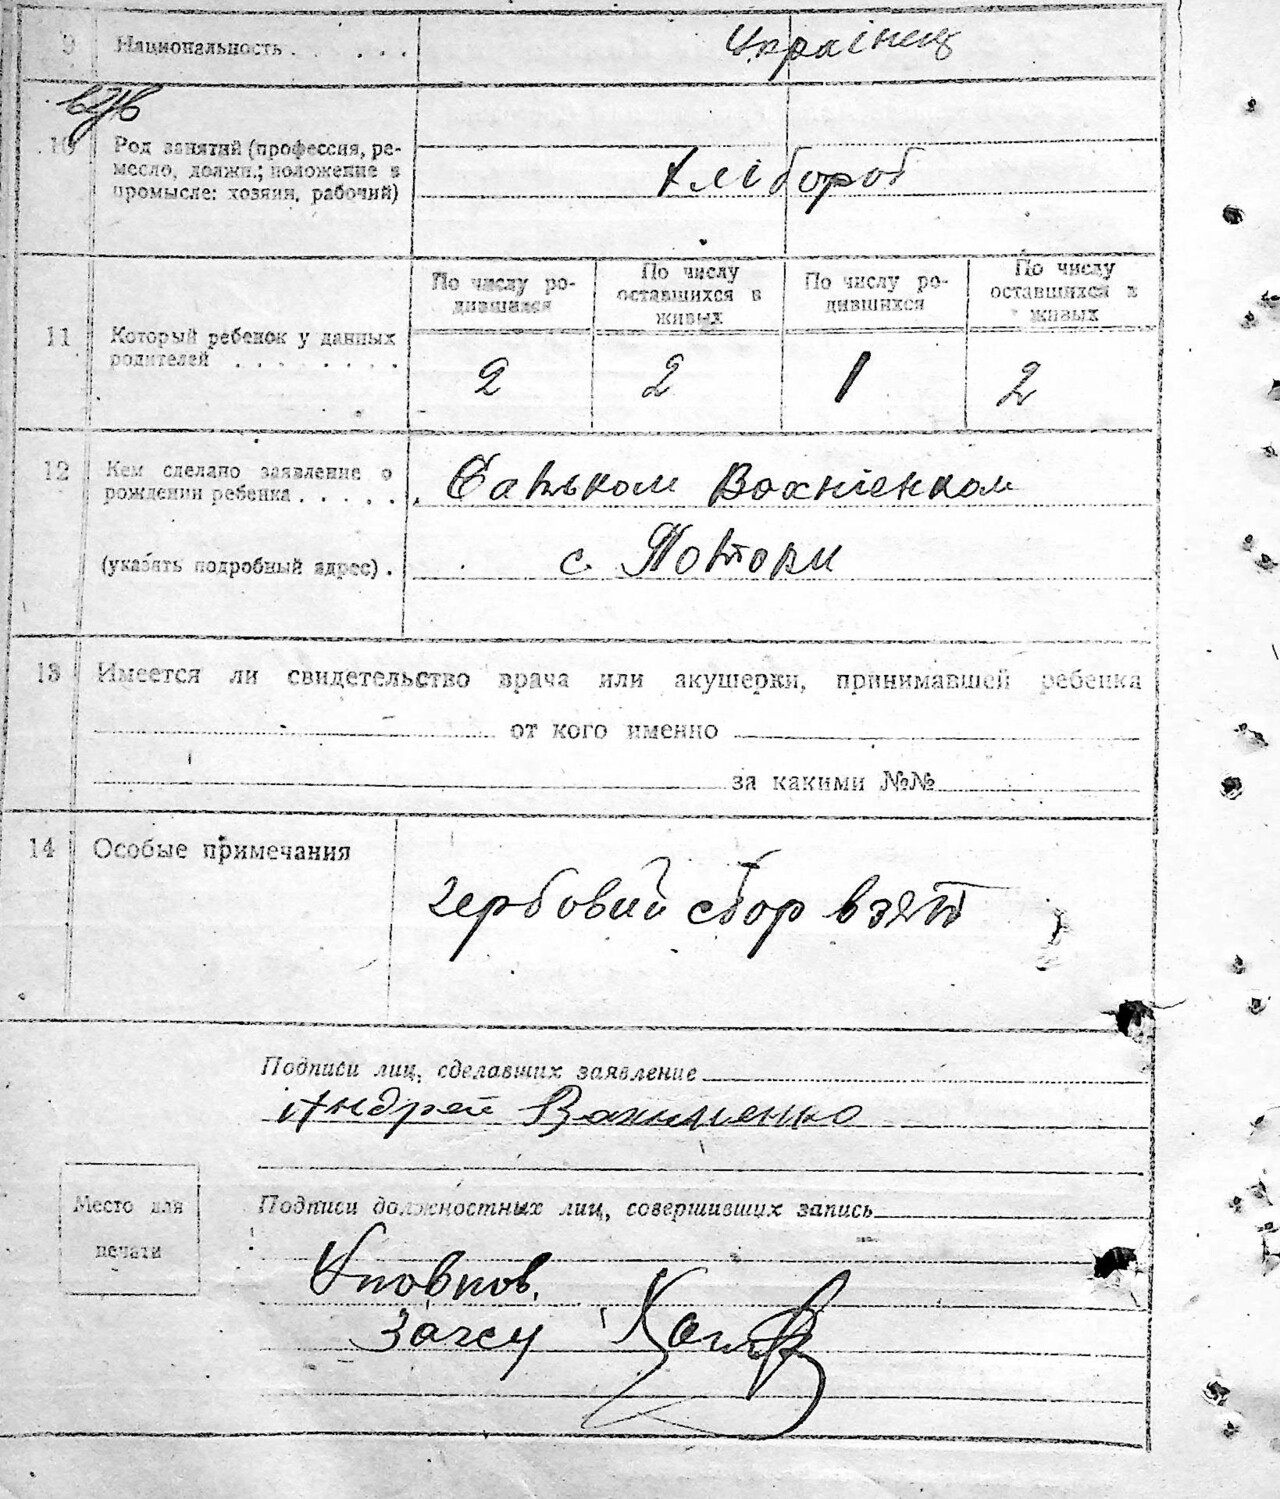 9 Национальность . . . . . Українец
10 Род занятий (профессия, ре-
месло, должн.; положение в
промысле: хозяин, рабочий)
Хлібороб
По числу ро-
дившихся
По числу
оставшихся в
живых
По числу ро-
дившихся
По числу
оставшихся в
живых
11 Который ребенок у данных
родителей . . . . . . . .
2 2 1 2
12 Кем сделано заявление о
рождении ребенка . . . . . .
Батьком Вахніенком
(указать подробный адрес) .
с. Потоки
13 Имеется ли свидетельство врача или акушерки, принимавшей ребенка
от кого именно
за какими №№
14 Особые примечания
гербовий сбор взят
Подписи лиц, сделавших заявление
Андрей
Место для
печати
Подписи должностных лиц, совершивших запись
Уповнов.
Загсу